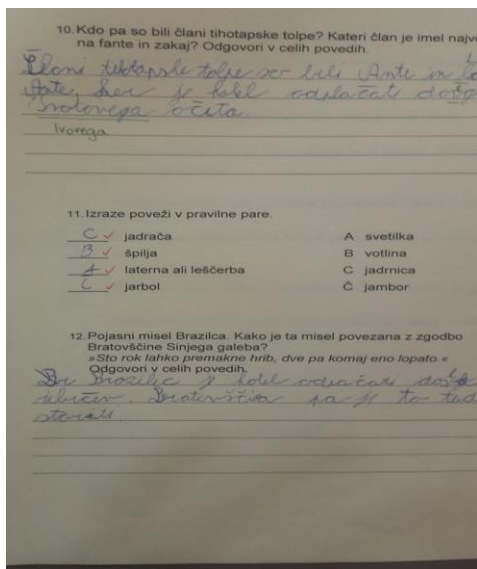 10. Kdo pa so bili člani tihotapske tolpe? Kateri član je imel najv
na fante in zakaj? Odgovori v celih povedih.
Člani tihotapske tolpe so bili Ante in
Ante, ker je hotel odplačati dolg
Bratovega očeta
Ivovega
11. Izraze poveži v pravilne pare.
C ✓ jadrača A svetilka
B ✓ špilja B votlina
A ✓ laterna ali leščerba C jadrnica
Č ✓ jarbol Č jambor
12. Pojasni misel Brazilca. Kako je ta misel povezana z zgodbo
Bratovščine Sinjega galeba?
»Sto rok lahko premakne hrib, dve pa komaj eno lopato.«
Odgovori v celih povedih.
Brazilic je hotel odplačati dolg
Bratovščina pa je to tud